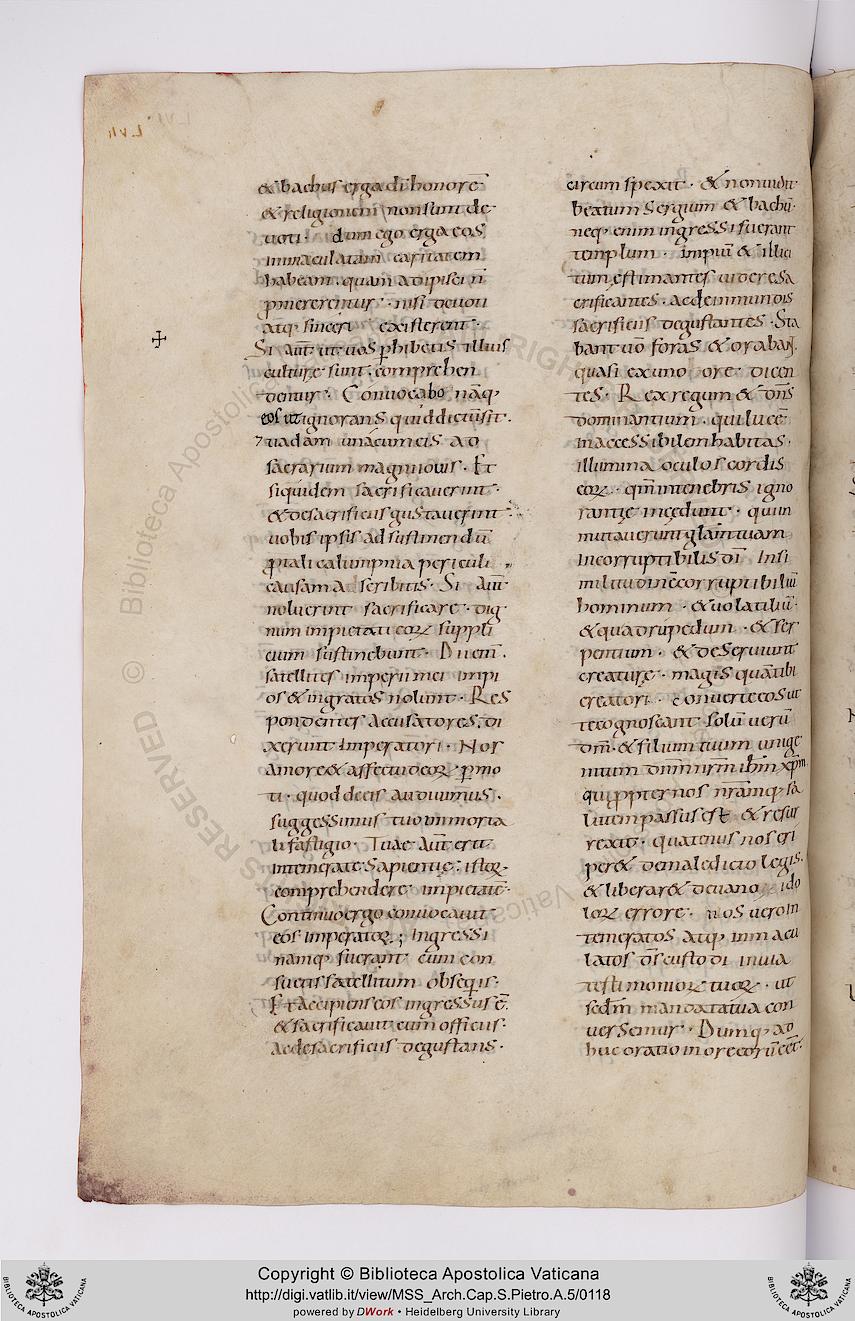 & bachus erga di honorē
& religionem non sunt de
uoti. dum ego erga eos
inmaculatam caritatem
habeam. quam adipisci ñ
pmererentur. nisi deuoti
atq; sinceri existerent.
Si aut̄ ut uos phibetis illius
culturę sunt. comprehen
dentur. Conuocabo nāq;
eos ut ignorans quid dictū sit.
7 uadam unacum eis ad
sacrarium magni iouis. Et
siquidem sacrificauerint.
& de sacrificiis gustauerint
uobis ipsis ad sustinendū
p tali calumpnia periculi
causam adscribitis. Si aut̄
noluerint sacrificare. dig
num impietati eorꝝ suppli
cium sustinebunt. Diı enī.
satellites imperii mei impi
os & ingratos nolunt. Res
pondentes accusatores. di
xerunt imperatori. Nos
amore & affectu deorꝝ pmo
ti. quod de eis audiuimus.
suggessimus tuo inmorta
li fastigio. Tuae aut̄ erit
intemeratę sapientię. istorꝝ
comprehendere impietatē.
Continuo ergo conuocauit
eos imperator; Ingressi
namq; fuerant cum con
suetis satellitum obsequiis.
Et accipiens eos ingressus ē.
& sacrificauit cum officiis.
ac de sacrificiis degustans.
circumspexit. & non uidit
beatum Sergium & bachū.
neq; enim ingressi fuerant
templum. impiū & illici
tum estimantes uidere sa
crificantes. ac de inmundis
sacrificiis degustantes. Sta
bant uō foras & orabant.
quasi ex uno ore dicen
tes. Rex regum & dñs
dominantium. qui lucē
inaccessibilem habitas.
illumina oculos cordis
eorꝝ. qm̄ in tenebris igno
rantię incedunt. qui in
mutauerunt głam tuam
incorruptibilis dī. In si
militudinē corruptibiliū
hominum. & uolatiliū.
& quadrupedum. & ser
pentium. & deseruiunt
creaturę. magis quā tibi
creatori. conuerte eos ut
te cognoscant solū uerū
dm̄. & filium tuum unige
nitum dnm̄ nrm̄ ihm̄ xpm̄.
qui ppter nos nram̄q; sa
lutem passus est & resur
rexit. quatenus nos eri
per& de maledicto legis.
& liberar& de uano ido
lorꝝ errore. nos uero in
temeratos atq; inmacu
latos ds̄ custodi in uia
testimoniorꝝ tuorꝝ. ut
scdm̄ mandata tua con
uersemur. Dumq; ad
huc oratio in ore eorū ēēt.
Copyright © Biblioteca Apostolica Vaticana
http://digi.vatlib.it/view/MSS_Arch.Cap.S.Pietro.A.5/0118
powered by DWork • Heidelberg University Library